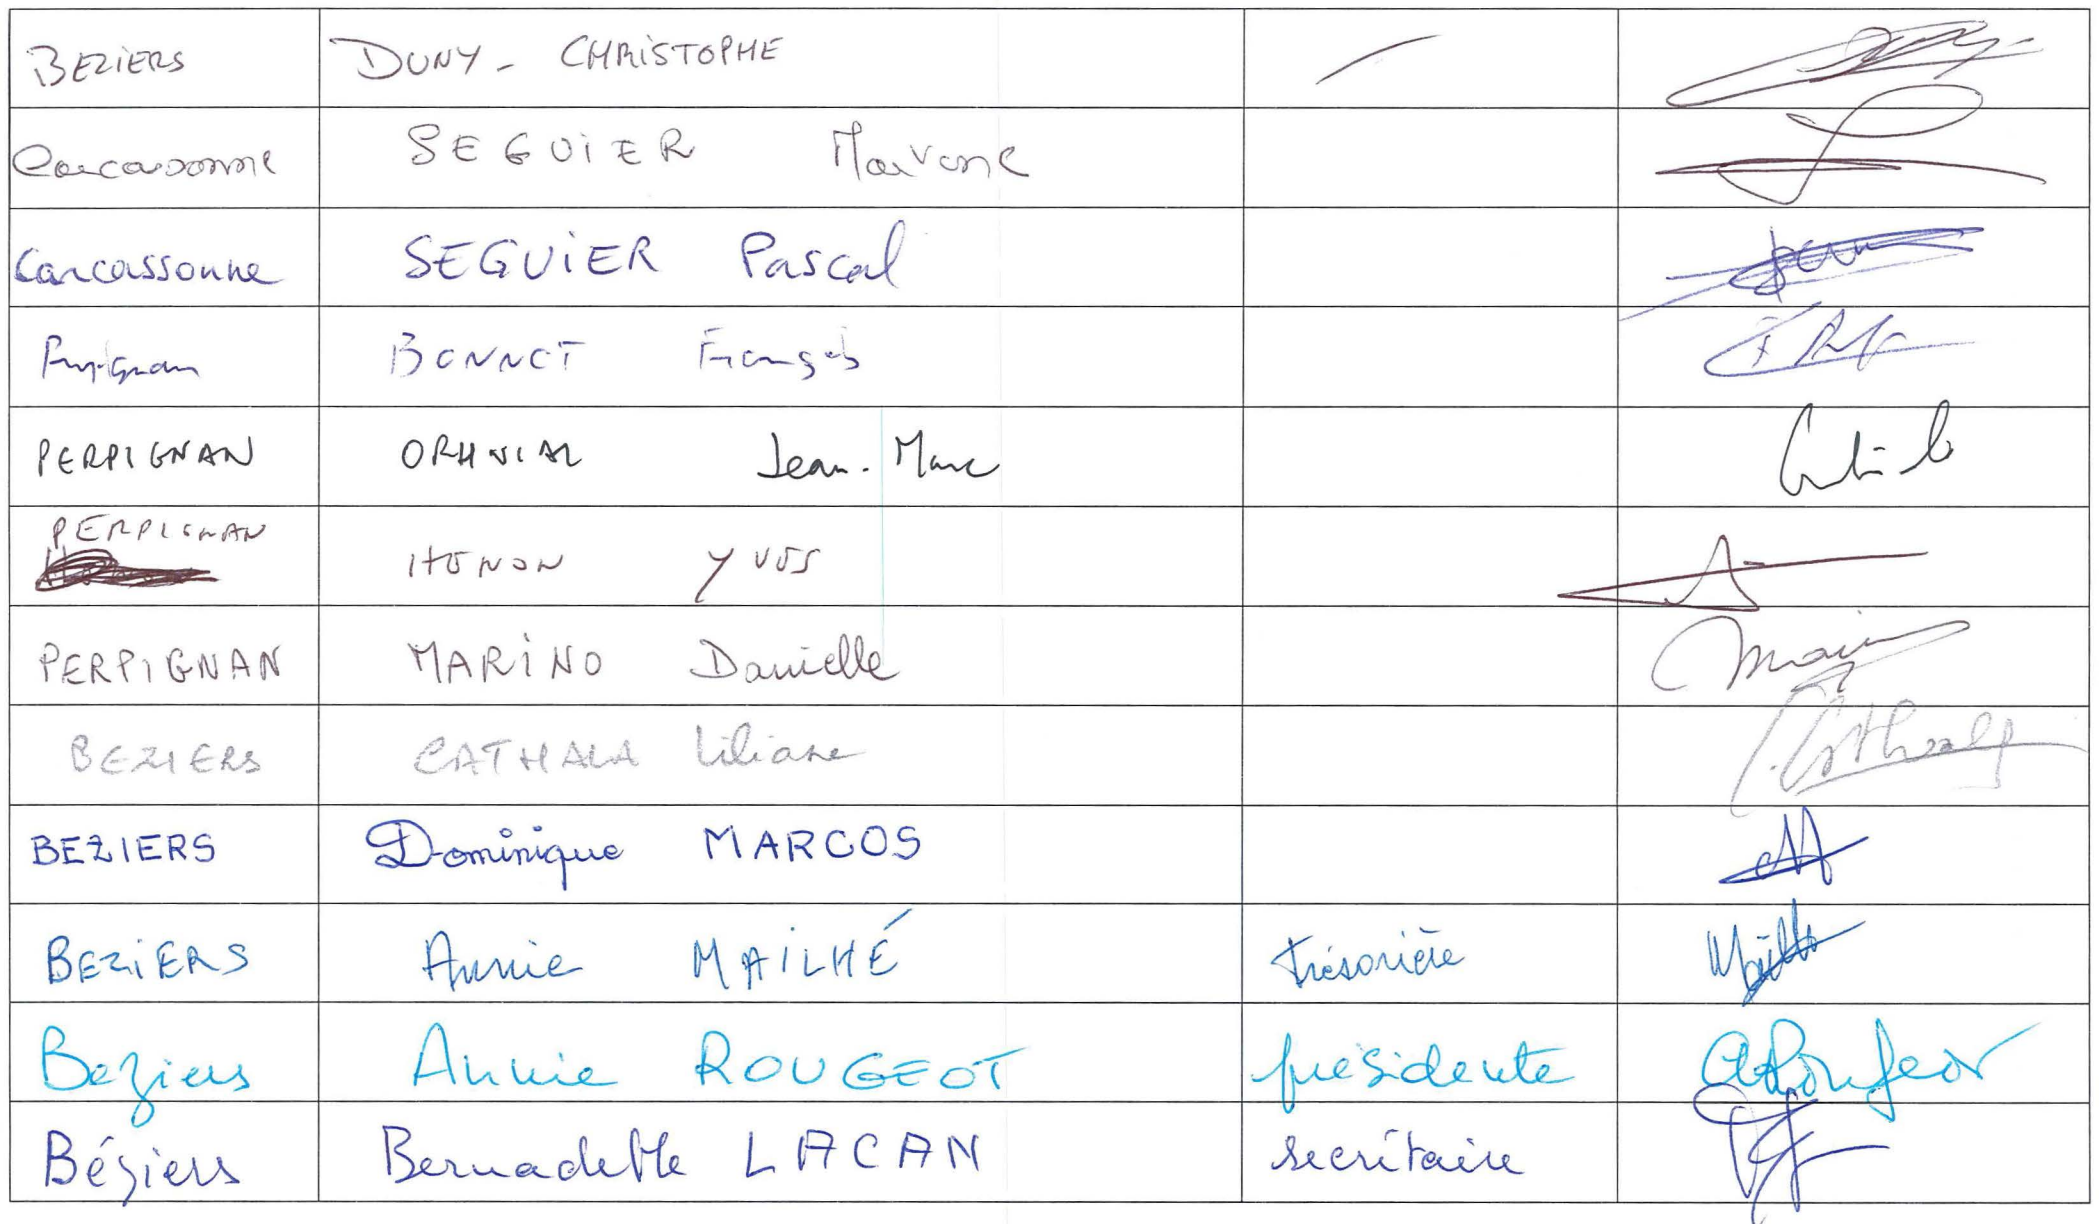 BEZIERS DUNY - CHRISTOPHE
Carcassonne SEGUIER
Carcassonne SEGUIER Pascal
Perpignan BONNET François
PERPIGNAN Jean-Marc
PERPIGNAN HENON YVES
PERPIGNAN MARINO Danielle
BEZIERS CATHALA Liliane
BEZIERS Dominique MARCOS
BEZIERS Annie MAILHÉ trésorière
Beziers Annie ROUGEOT présidente
Béziers Bernadette LACAN secrétaire